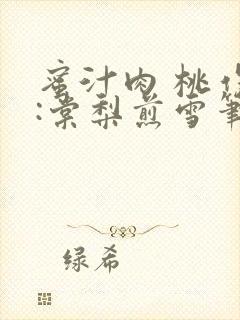 蜜汁肉桃
:棠梨煎雪
绿希